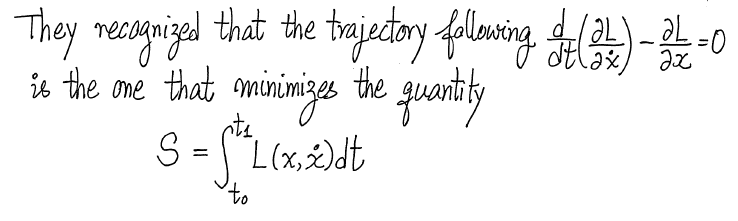 They recognized that the trajectory following d/dt(∂L/∂ẋ) - ∂L/∂x = 0
is the one that minimizes the quantity
S = ∫_{t₀}^{t₁} L(x, ẋ)dt